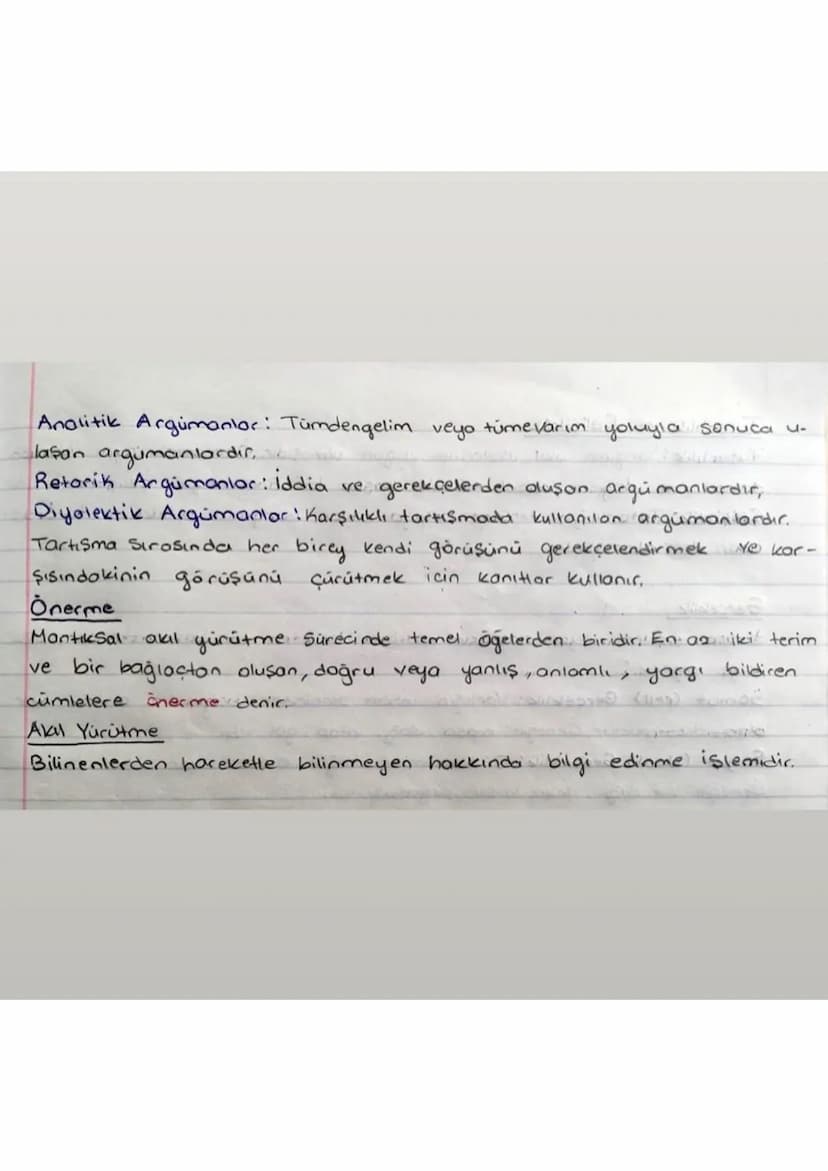 Analitik Argümanlar: Tümdengelim veya tümevarım yoluyla sonuca u-
laşan argümanlardır.
Retorik Argümanlar: İddia ve gerekçelerden oluşan argümanlardır,
Diyalektik Argümanlar: Karşılıklı tartışmada kullanılan argümanlardır.
Tartışma sırasında her birey kendi görüşünü gerekçelendirmek ve kar-
şısındakinin görüşünü çürütmek için kanıtlar kullanır.
Önerme
Mantıksal akıl yürütme sürecinde temel öğelerden biridir. En az iki terim
ve bir bağlaçtan oluşan, doğru veya yanlış, anlamlı, yargı bildiren
cümlelere önerme denir.
Akıl Yürütme
Bilinenlerden hareketle bilinmeyen hakkında bilgi edinme işlemidir.